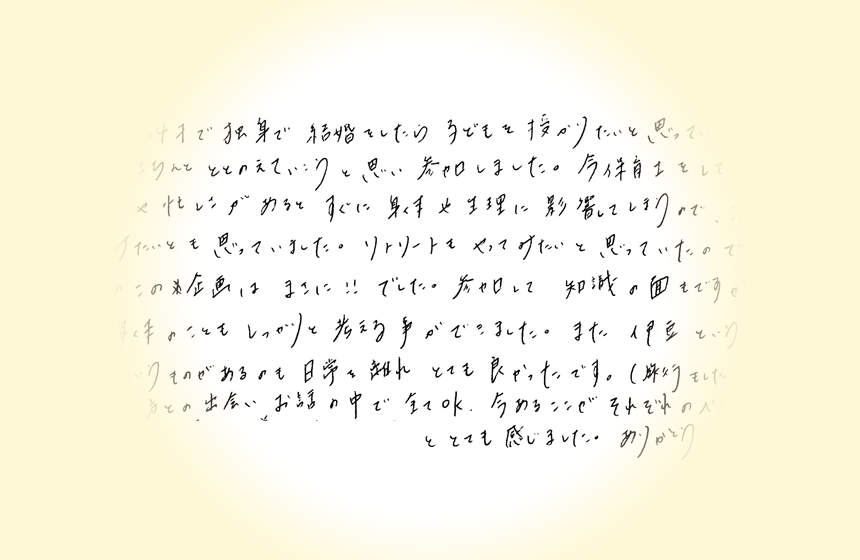 才で独身で 結婚をしたら 子どもを 授かりたいと 思ってい
ちんと ととのえていこうと思い 参加しました。今保育士をして
や忙しさが あると すぐに 身体や 生理に 影響してしまうので、
たいとも 思っていました。リトリートも やってみたいと 思っていたので
この企画は まさに!! でした。参加して 知識の面もですが
身体のことも しっかりと 考える事ができました。また 伊豆という
いうものがあるのも 日常を離れ とても 良かったです。(旅行もした
方との 出会い お話の中で 全てOK. 今あるここが それぞれのベ
と とても 感じました。ありがとう